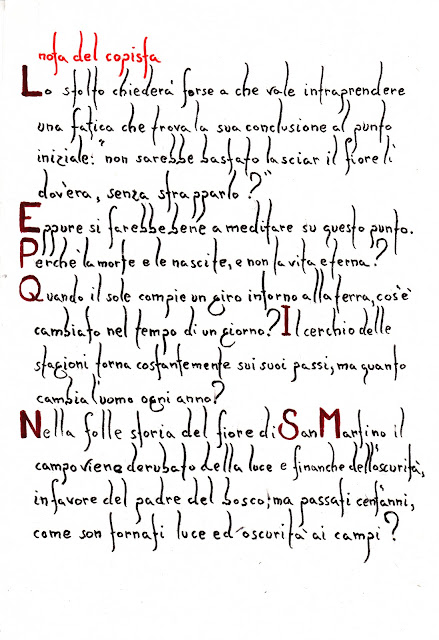 nota del copista
Lo stolto chiederà forse a che vale intraprendere
una fatica che trova la sua conclusione al punto
iniziale: "non sarebbe bastato lasciar il fiore lì
dov'era, senza strapparlo?"
Eppure si farebbe bene a meditare su questo punto.
Perchè la morte e le nascite, e non la vita eterna?
Quando il sole compie un giro intorno alla terra, cos'è
cambiato nel tempo di un giorno? Il cerchio delle
stagioni torna costantemente sui suoi passi, ma quanto
cambia l'uomo ogni anno?
Nella folle storia del fiore di San Martino il
campo viene derubato della luce e finanche dell'oscurità,
in favore del padre del bosco; ma passati cent'anni,
come son tornati luce ed oscurità ai campi?